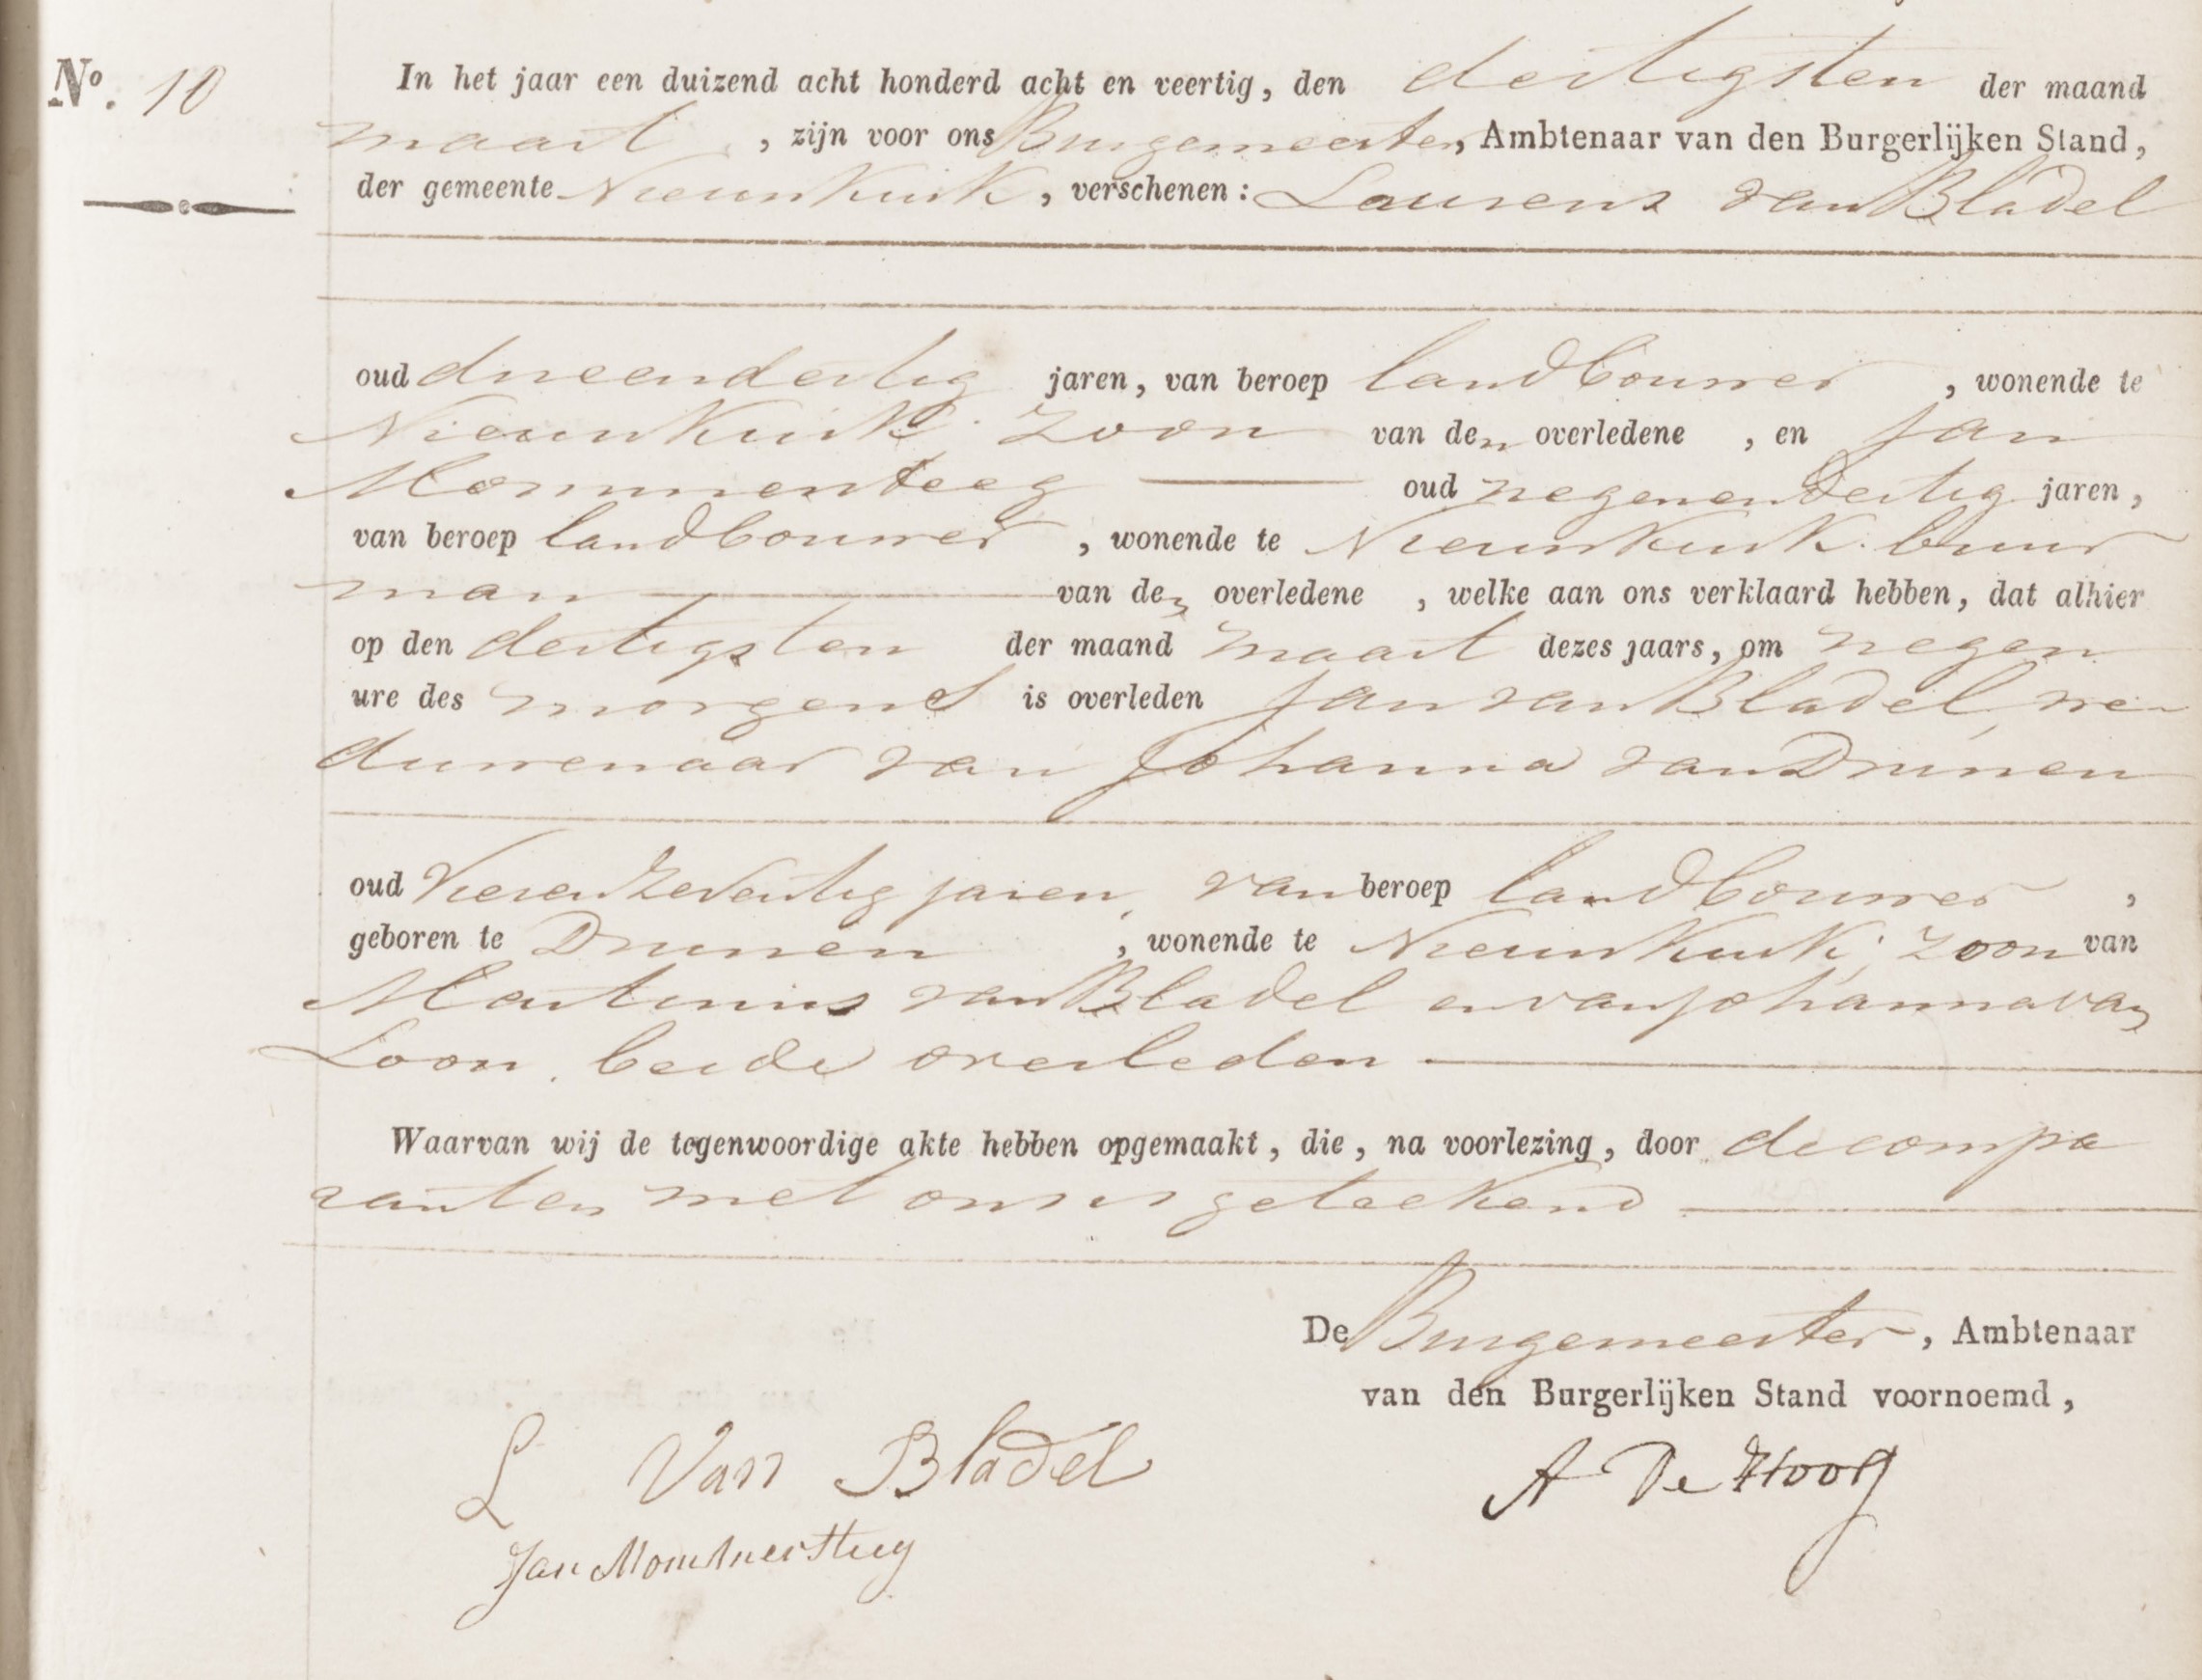 No. 10
In het jaar een duizend acht honderd acht en veertig, den dertigsten der maand
maart , zijn voor ons Burgemeester, Ambtenaar van den Burgerlijken Stand,
der gemeente Nieuwkuik, verschenen: Laurens van Bladel
oud drieendertig jaren, van beroep landbouwer , wonende te
Nieuwkuik zoon van den overledene , en Jan
Mommersteeg oud negenendertig jaren,
van beroep landbouwer , wonende te Nieuwkuik buur
man van den overledene , welke aan ons verklaard hebben, dat alhier
op den dertigsten der maand maart dezes jaars, om negen
ure des morgens is overleden Jan van Bladel, we-
duwenaar van Johanna van Drunen
oud Vierenzeventig jaren, van beroep landbouwer ,
geboren te Drunen , wonende te Nieuwkuik, zoon van
Martinus van Bladel en van Johanna van
Loon, beide overleden
Waarvan wij de tegenwoordige akte hebben opgemaakt, die, na voorlezing, door de compa
ranten met ons is geteekend
De Burgemeester, Ambtenaar
van den Burgerlijken Stand voornoemd,
L Van Bladel
A De Hoog
Jan Mommersteeg